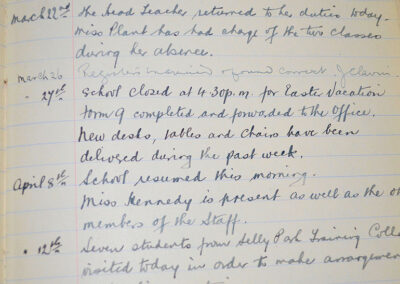 March 22nd the Head Teacher returned to her duties today.
Miss Plant has had charge of the two classes
during her absence.
March 26 Registers examined & found correct. J
" 27th School closed at 4.30 p.m. for Easter Vacation
Form 9 completed and forwaded to the Office.
New desks, tables and chairs have been
delivered during the past week.
April 8th School resumed this morning.
Miss Kennedy is present as well as the ot
members of the Staff.
" 12th Seven students from Selly Park Training Colle
visited today in order to make arrangemen